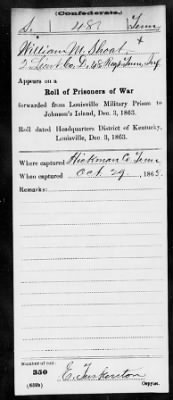 (Confederate.)
S. 48 Tenn
William M. Shoat
2 Lieut Co. D, 48 Reg't Tenn. Inf
Appears on a
Roll of Prisoners of War
forwarded from Louisville Military Prison to
Johnson's Island, Dec. 3, 1863.
Roll dated Headquarters District of Kentucky,
Louisville, Dec. 3, 1863.
Where captured Hickman Co. Tenn
When captured Oct. 29, 1863.
Remarks:
Number of roll:
350
(639b) Copyist.